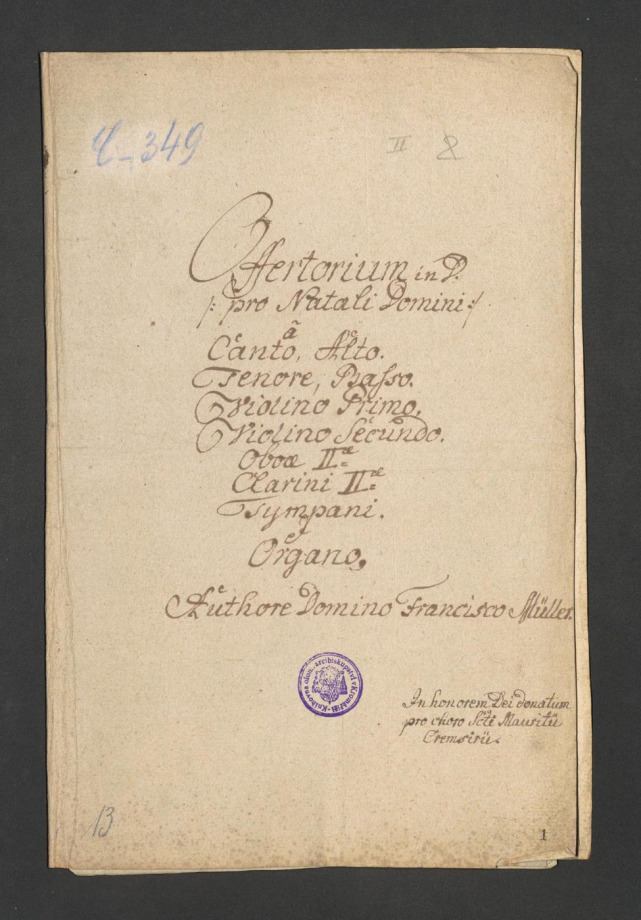 C-349
II 8
Offertorium in D.
/: pro Natali Domini :/
ã
Canto, Alto.
Tenore, Basso.
Violino Primo.
Violino Secundo.
Oboæ IIæ
Clarini IIæ
Tympani.
e
Organo.
Authore Domino Francisco Müller.
Knihovna olom. arcibiskupství v Kroměříži
In honorem Dei donatum
pro choro Scti Mauritii
Cremsirii.
13
1